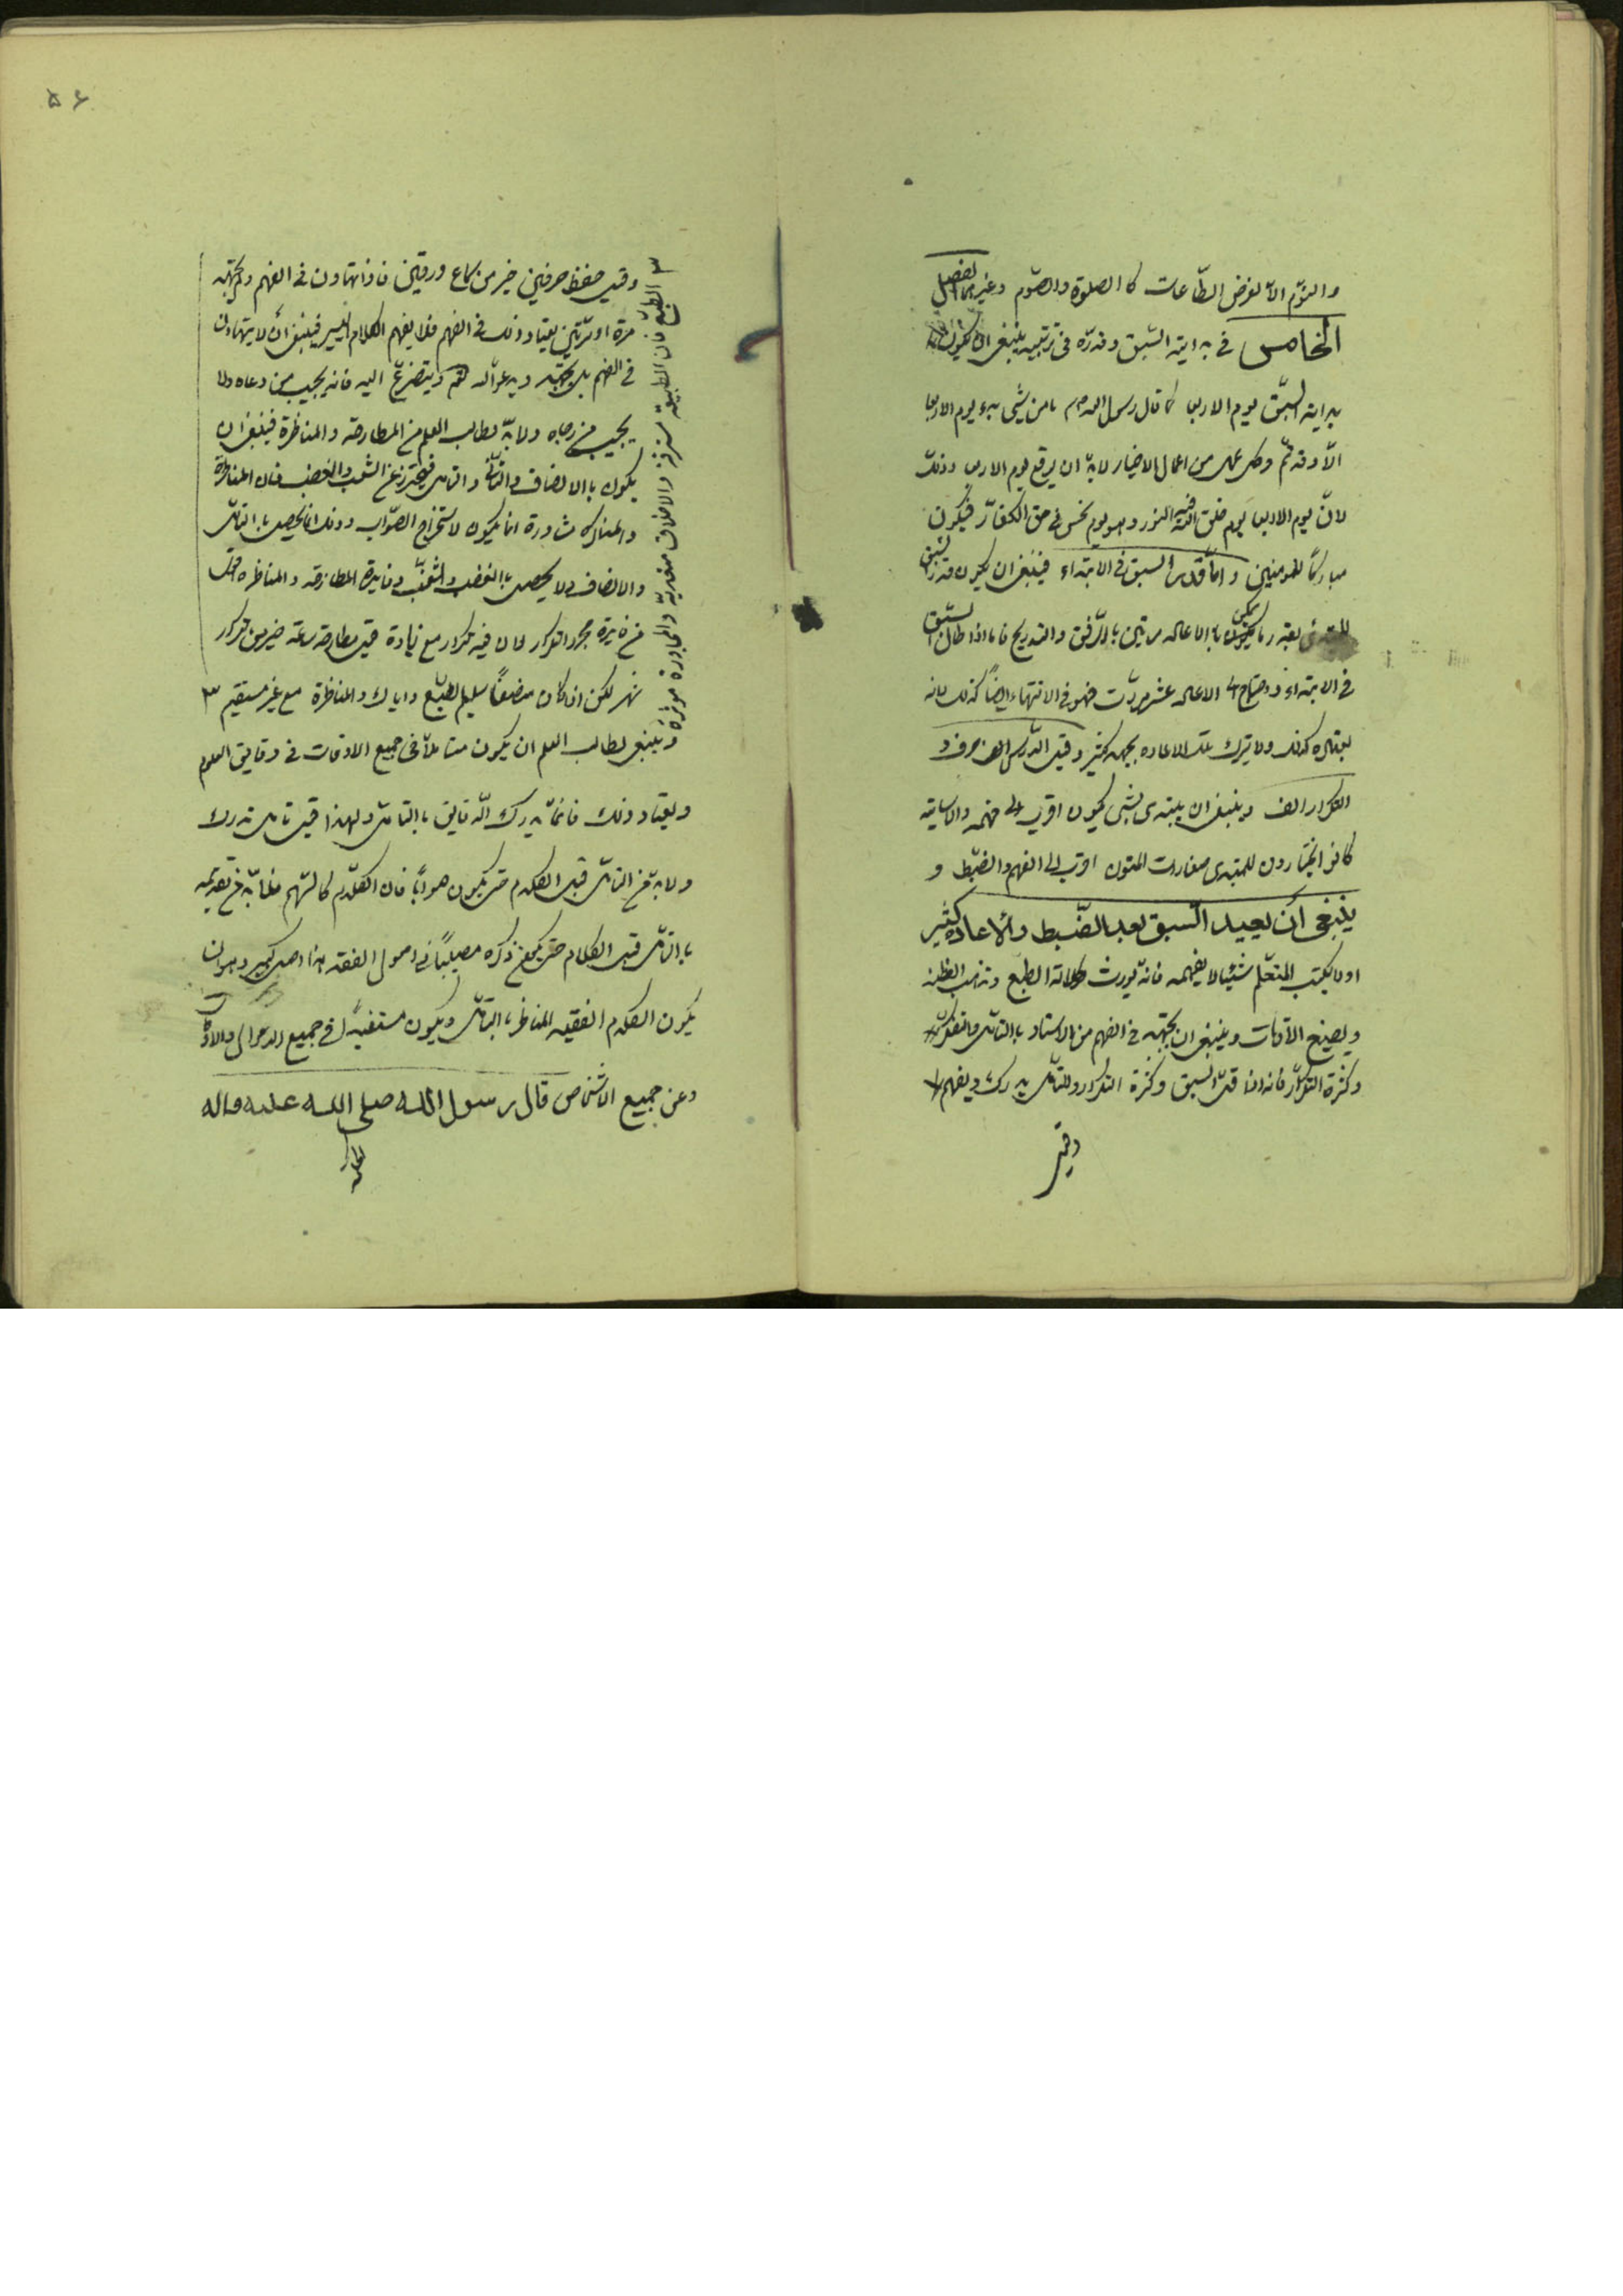 ۵۶
والنوم الا لغرض الطاعات كا الصلوة والصوم وغيرهما الفصل
الخامس في بداية السبق وقدره في ترتيبه ينبغي ان يكون
بداية السبق يوم الاربعا كما قال رسول الله ص مامن شيئ بدء يوم الاربعا
الا وقد تم وكل عمل من اعمال الاخيار لابد ان يوقع يوم الاربعا وذلك
لان يوم الاربعا يوم خلق الله فيه النور وهو يوم نحس في حق الكفار فيكون
مباركا للمومنين واما قدر السبق في الابتداء فينبغي ان يكون قدر السبق
للمبتدئ بقدر ما يمكن با الاعاده مرتين با الرفق والتدريج فاما اذا طال السبق
في الابتداء واحتاج الى الاعاده عشر مرات فهو في الانتهاء ايضا كذلك لانه
يعتاده كذلك ولا يترك تلك الاعاده بجهد كثير وقيل الدرس الف حرف و
التكرار الف وينبغي ان يبتدى بشئ يكون اقرب الى فهمه والاساتيد
كانوا يختارون للمبتدى صغارات المتون اقرب الى الفهم والضبط و
ينبغي أن يعيد السبق بعد الضبط والاعاده كثير
او لا يكتب المتعلم شيئا لا يفهمه فانه يورث كلالة الطبع وتذهب الفطنه
ويضيع الاوقات وينبغي ان يجتهد في الفهم من الاستاد با التامل والتفكر
وكثرة التكرار فانه اذا قل السبق وكثرة التكرار والتامل يدرك ويفهم
وقيل
وقيل حفظ حرفين خير من سماع ورقتين فاذا تهاون في الفهم ولم يجتهد
مرة او مرتين يعتاد ذلك في الفهم فلا يفهم الكلام اليسير فينبغي أن لا يتهاون
في الفهم بل يجتهد ويدعو الله تعم ويتضرع اليه فانه يجيب من دعاه ولا
يخيب من رجاه ولابد لطالب العلم من المطارحة والمناظرة فينبغي ان
يكون با الانصاف والتأني والتامل فيحترز عن الشغب والغضب فان المناظرة
والمذاكره مشاورة انما يكون لاستخراج الصواب وذلك انما يحصل با التامل
والانصاف ولا يحصل با الغضب والشغب وفايدة المطارحه والمناظره اقوى
من فايدة مجرد التكرار لان فيه تكرار مع زيادة قيل مطارحه ساعة خير من تكرار
شهر لكن اذا كان منصفا سليم الطبع واياك والمناظرة مع غير مستقيم ٣
٣ الطبع فان الطبيعة مسترقة والاخلاق متعدية والمجاورة موثرة
وينبغي لطالب العلم ان يكون متاملا في جميع الاوقات في دقايق العلوم
ويعتاد ذلك فانما يدرك الدقايق با التامل ولهذا قيل تامل تدرك
ولابد من التامل قبل الكلام حتى يكون صوابا فان الكلام كالسهم فلا بد من تقديمه
با التامل قبل الكلام حتى يكون ذكره مصيبا في اصول الفقه هذا اصل كبير وهو ان
يكون الكلام الفقيه المناظر با التامل ويكون مستفيدا في جميع الاحوال والاوقات
وعن جميع الاشخاص قال رسول الله صلى الله عليه واله